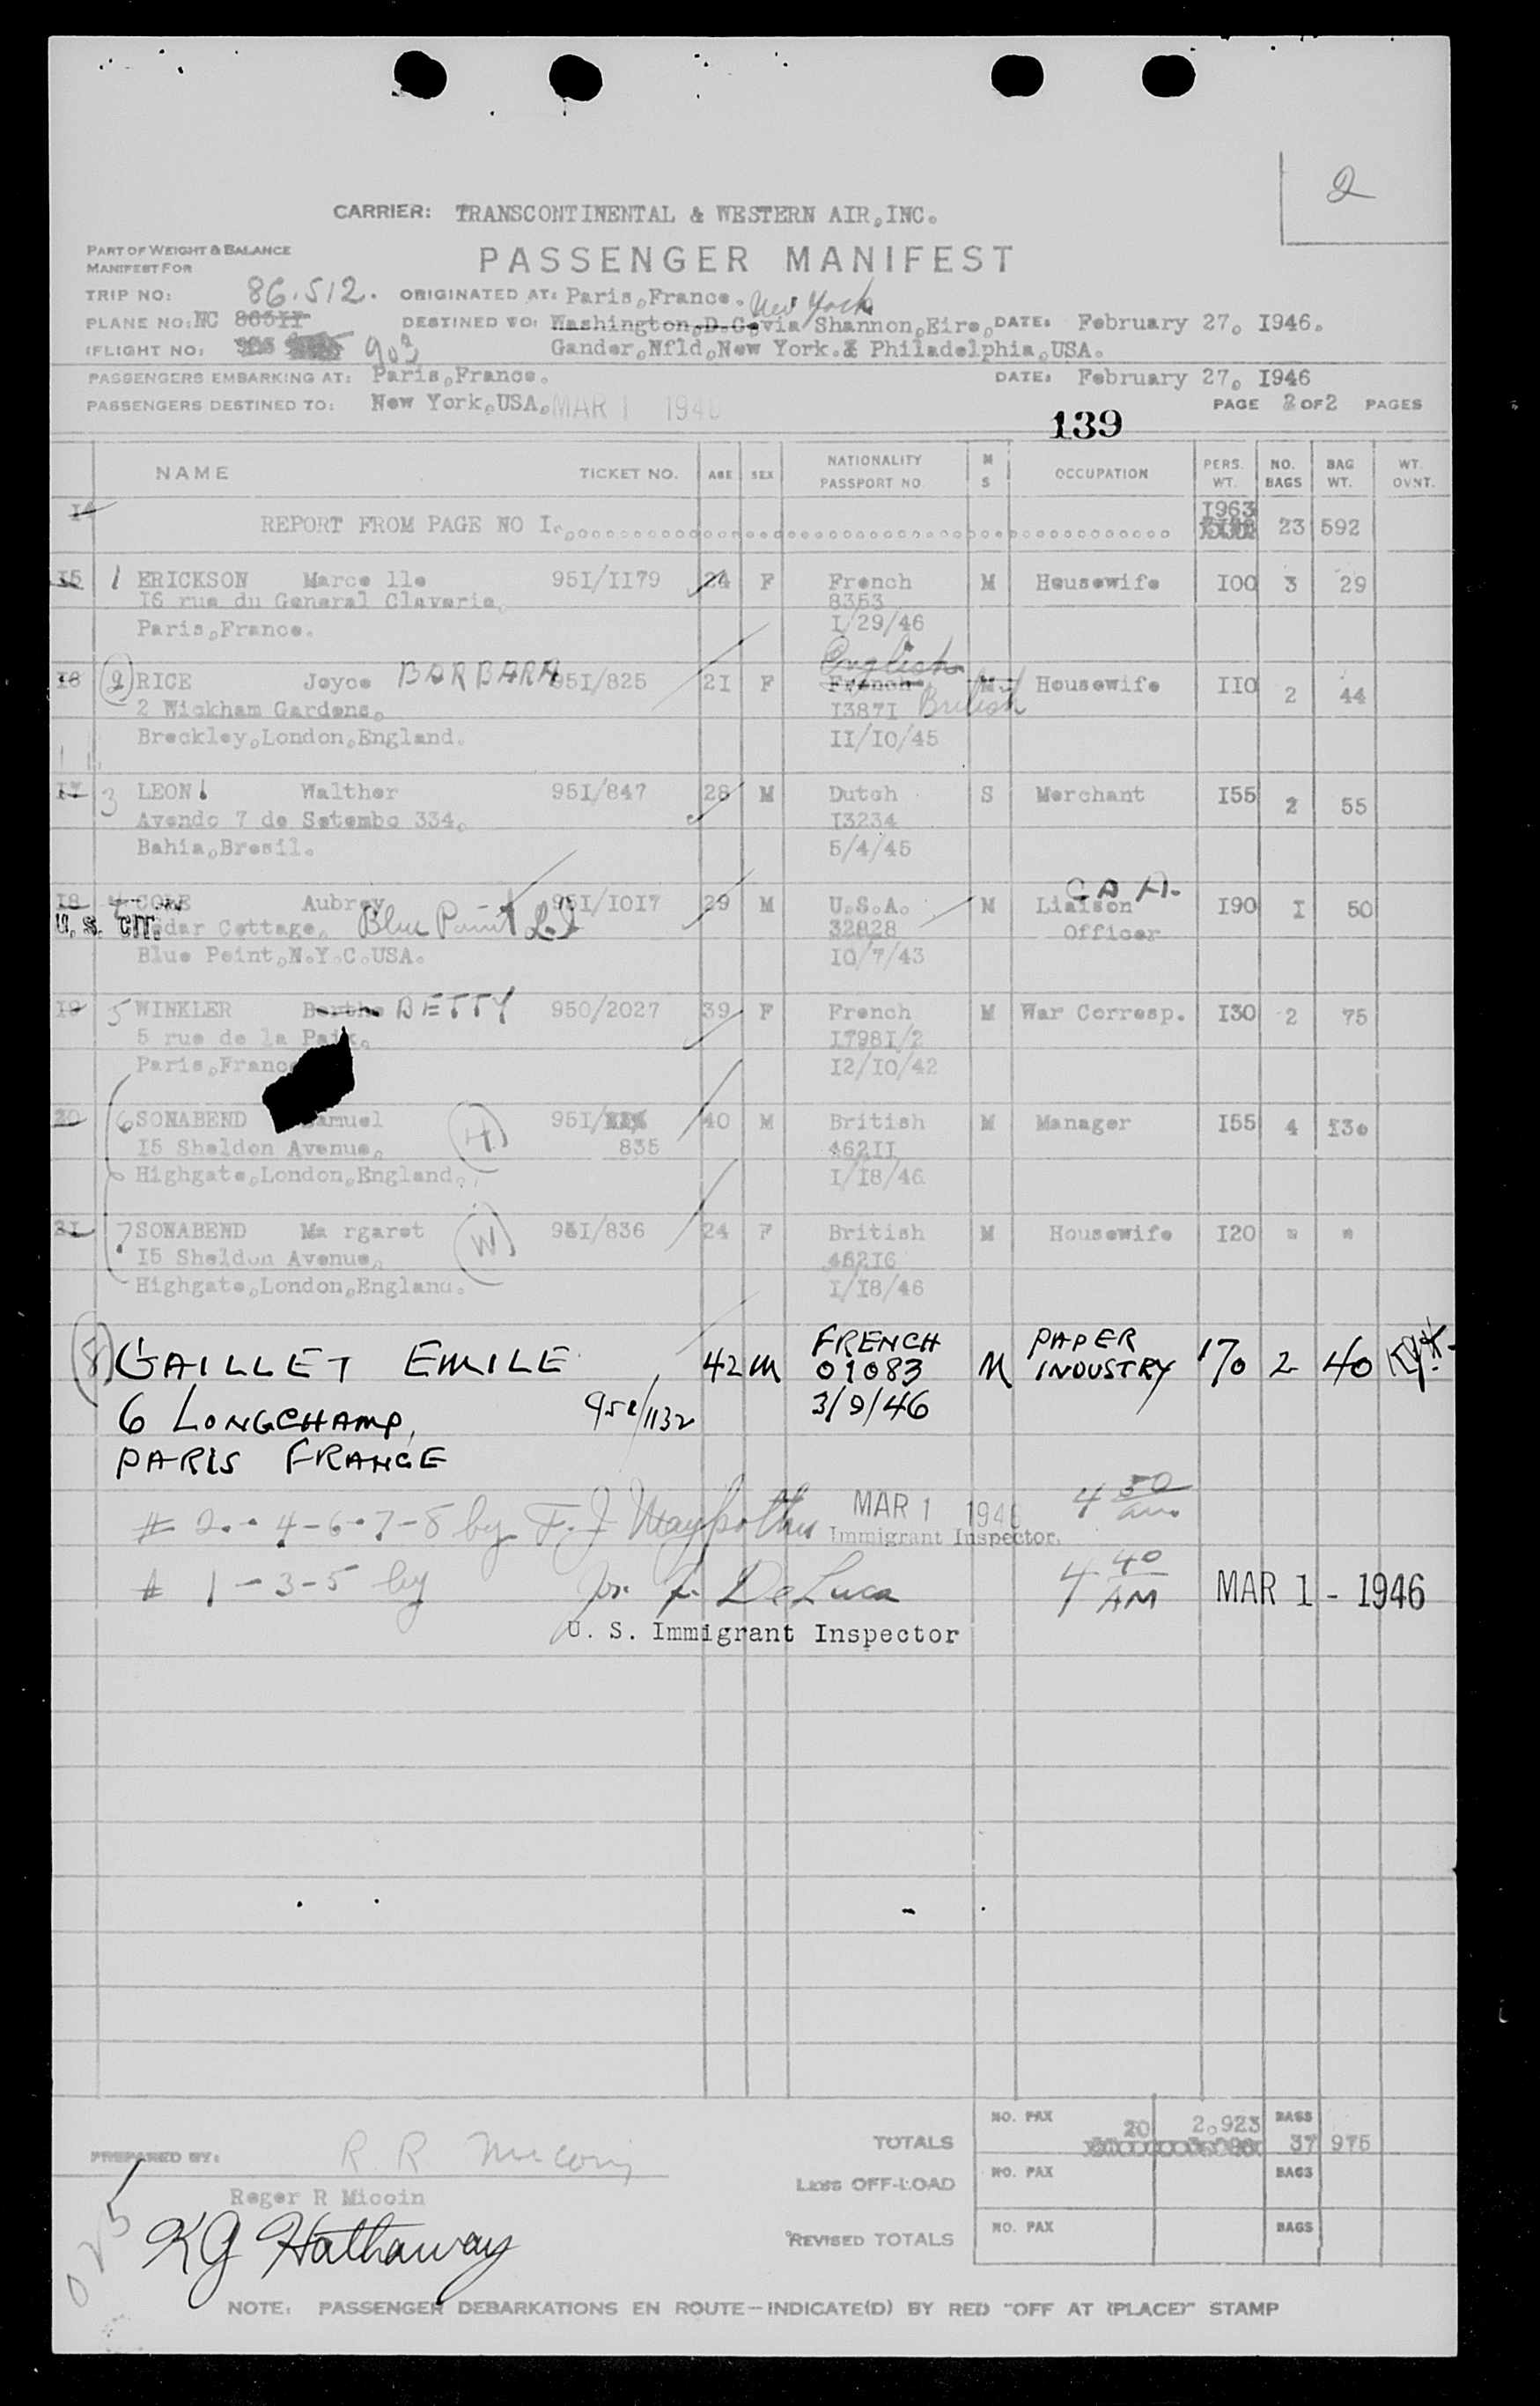 2
CARRIER: TRANSCONTINENTAL & WESTERN AIR, INC.
PART OF WEIGHT & BALANCE
MANIFEST FOR
PASSENGER MANIFEST
TRIP NO: 86.512. ORIGINATED AT: Paris, France. New York
PLANE NO: NC DESTINED TO: Washington, D.C. via Shannon, Eire, DATE: February 27, I946.
FLIGHT NO: 903 Gander, Nfld, New York. & Philadelphia, USA.
PASSENGERS EMBARKING AT: Paris, France. DATE: February 27, I946
PASSENGERS DESTINED TO: New York, USA. MAR 1 1946 PAGE 2 OF 2 PAGES
139
NAME TICKET NO. AGE SEX NATIONALITY PASSPORT NO. M S OCCUPATION PERS. WT. NO. BAGS BAG WT. WT. OVNT.
I4 REPORT FROM PAGE NO I. I963 23 592
I5 1 ERICKSON Marce lle 95I/II79 24 F French M Housewife I00 3 29
I6 rue du General Claverie, 8353
Paris, France. I/29/46
English
I6 2 RICE Joyce BARBARA 95I/825 21 F French M Housewife II0 2 44
2 Wickham Gardens, I387I British
Brockley, London, England. II/I0/45
I7 3 LEON Walther 95I/847 28 M Dutch S Merchant I55 2 55
Avendo 7 de Setembo 334, I3234
Bahia, Bresil. 5/4/45
C A A.
I8 4 COLE Aubrey 95I/I0I7 29 M U.S.A. M Liaison I90 I 50
U.S. CIT. Cedar Cottage, Blue Point L.I 32828 Officer
Blue Point, N.Y.C. USA. I0/7/43
I9 5 WINKLER Berthe BETTY 950/2027 39 F French M War Corresp. I30 2 75
5 rue de la Paix, I798I/2
Paris, France I2/I0/42
20 6 SONABEND Samuel H 95I/ 40 M British M Manager I55 4 I30
I5 Sheldon Avenue, 835 462II
Highgate, London, England. I/I8/46
2I 7 SONABEND Ma rgaret W 95I/836 24 F British M Housewife I20 " "
I5 Sheldon Avenue, 462I6
Highgate, London, England. I/I8/46
8 GAILLET EMILE 42 M FRENCH 01083 M PAPER INDUSTRY 170 2 40
6 LONGCHAMP, 951/1132 3/9/46
PARIS FRANCE
# 2 - 4 - 6 - 7 - 8 by F. J. MAR 1 1946 4 50 am
Immigrant Inspector.
# 1 - 3 - 5 by DeLuca 4 40 AM MAR 1 - 1946
U. S. Immigrant Inspector
NO. PAX 20 2,923 BAGS
TOTALS 37 975
PREPARED BY: R R Micoin NO. PAX BAGS
LESS OFF-LOAD
Roger R Micoin
NO. PAX BAGS
REVISED TOTALS
KG Hathaway
NOTE: PASSENGER DEBARKATIONS EN ROUTE—INDICATE(D) BY RED "OFF AT (PLACE)" STAMP